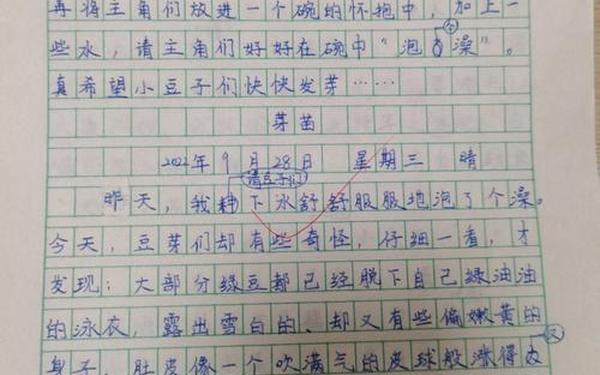 再将主角们放进一个碗的怀抱中，加上一
些水，请主角们好好在碗中“泡个澡”。
真希望小豆子们快快发芽……
芽苗
2022年9月28日 星期三 晴
请豆子们
昨天，我 下水舒舒服服地泡了个澡。
今天，豆芽们却有些奇怪，仔细一看，才
发现：大部分绿豆都已经脱下自己绿油油
的泳衣，露出雪白的、却又有些偏嫩黄的
身子，肚皮像一个吹满气的皮球般涨得又